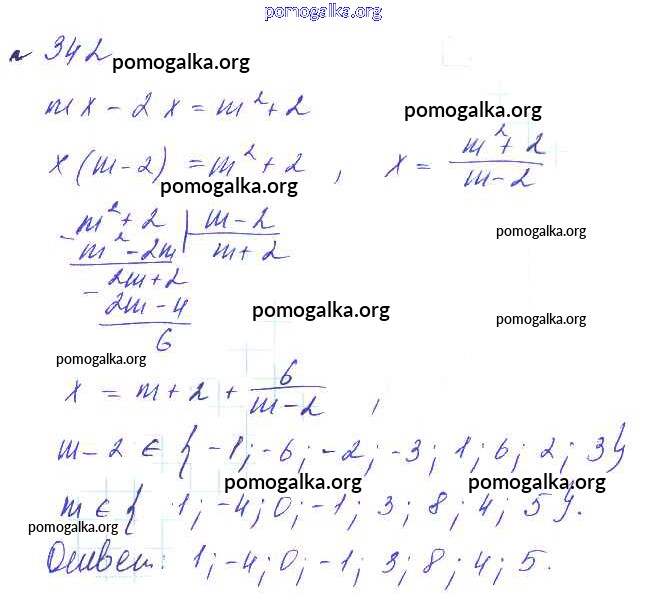 pomogalka.org
№ 342
pomogalka.org
mx - 2x = m² + 2
pomogalka.org
x(m - 2) = m² + 2, x = (m² + 2)/(m - 2)
pomogalka.org
m² + 2 | m - 2
pomogalka.org
- m² - 2m | m + 2
2m + 2
- 2m - 4
pomogalka.org
pomogalka.org
6
pomogalka.org
x = m + 2 + 6/(m - 2),
m - 2 ∈ { -1; -6; -2; -3; 1; 6; 2; 3}
pomogalka.org
pomogalka.org
m ∈ { 1; -4; 0; -1; 3; 8; 4; 5}.
pomogalka.org
Ответ: 1; -4; 0; -1; 3; 8; 4; 5.